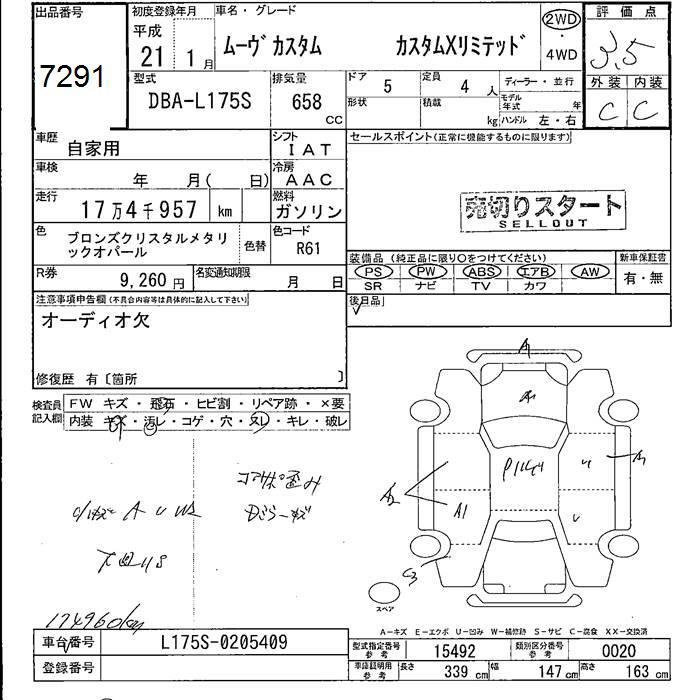 出品番号 初度登録年月 車名・グレード 評価点
7291 平成 21 1月 ムーヴカスタム カスタムXリミテッド 2WD ・ 4WD 3.5
型式 排気量 ドア 5 定員 4 人 ディーラー・並行 外装 内装
DBA-L175S 658 CC 形状 積載 kg モデル年式 年 ハンドル 左・右 C C
車歴 自家用 シフト IAT セールスポイント(正常に機能するものに限ります)
車検 年 月( 日) 冷房 AAC
走行 17万4千957 km 燃料 ガソリン
売切りスタート
SELLOUT
色 ブロンズクリスタルメタリックオパール 色替 色コード R61
装備品(純正品に限り○をつけてください) 新車保証書
R券 9,260円 名変通知期限 月 日 PS PW ABS エアB AW 有・無
SR ナビ TV カワ
注意事項申告欄(不具合内容等は具体的に記入して下さい) 後日品
オーディオ欠
修復歴 有〔箇所 〕
検査員記入欄 FW キズ・飛石・ヒビ割・リペア跡・×要
内装 キズ・汚レ・コゲ・穴・ヌレ・キレ・破レ
A1
A
A2
A1
U
U
A1
コアサポ歪み
A U W2
下回りS
C3
スペア
174960km
A－キズ E－エクボ U－凹み W－補修跡 S－サビ C－腐食 XX－交換済
車台番号 L175S-0205409 型式指定番号 参考 15492 類別区分番号 参考 0020
登録番号 車庫証明用 参考 長さ 339 cm 幅 147 cm 高さ 163 cm